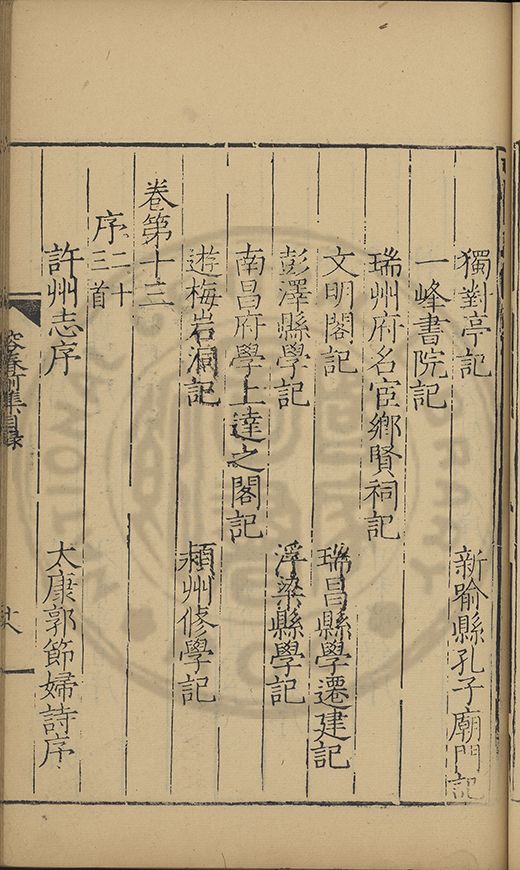 獨對亭記　新喻縣孔子廟門記
一峰書院記
瑞州府名宦鄉賢祠記
文明閣記　瑞昌縣學遷建記
彭澤縣學記　浮梁縣學記
南昌府學上達之閣記
遊梅岩洞記　潁州修學記
卷第十三
序二十三首
許州志序　太康郭節婦詩序
容春前集目錄